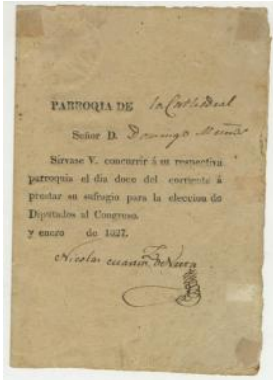 PARROQIA DE la Cathedral
Señor D. Domingo
Sirvase V. concurrir á su respectiva
parroquia el dia doce del corriente á
prestar su sufragio para la eleccion de
Diputados al Congreso.
y enero de 1827.
Nicolas